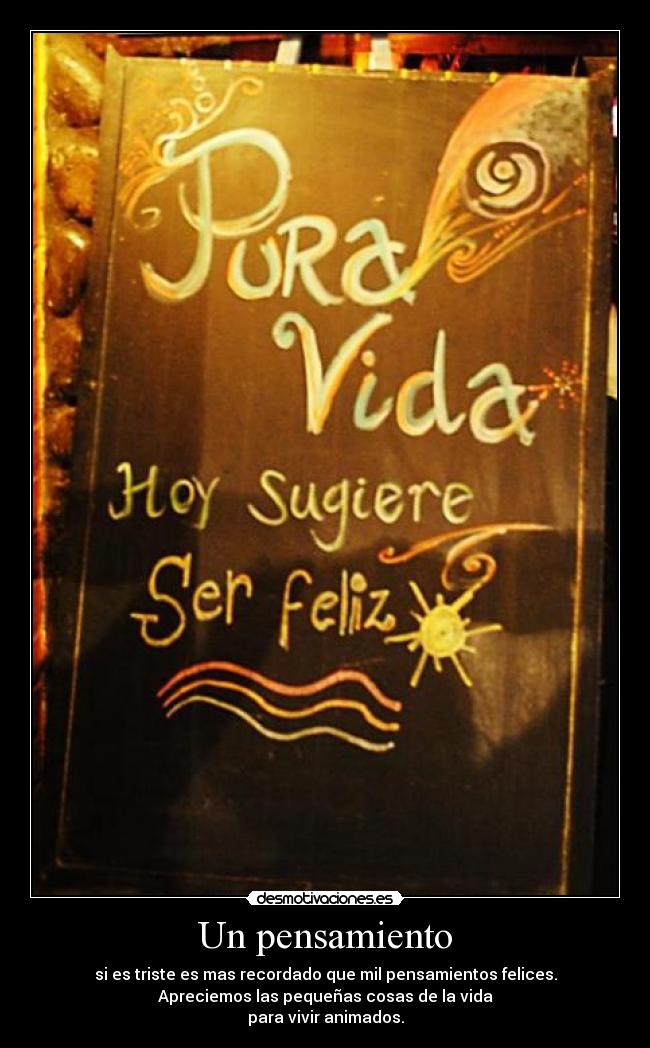 Pura
Vida
Hoy Sugiere
Ser feliz
desmotivaciones.es
Un pensamiento
si es triste es mas recordado que mil pensamientos felices.
Apreciemos las pequeñas cosas de la vida
para vivir animados.